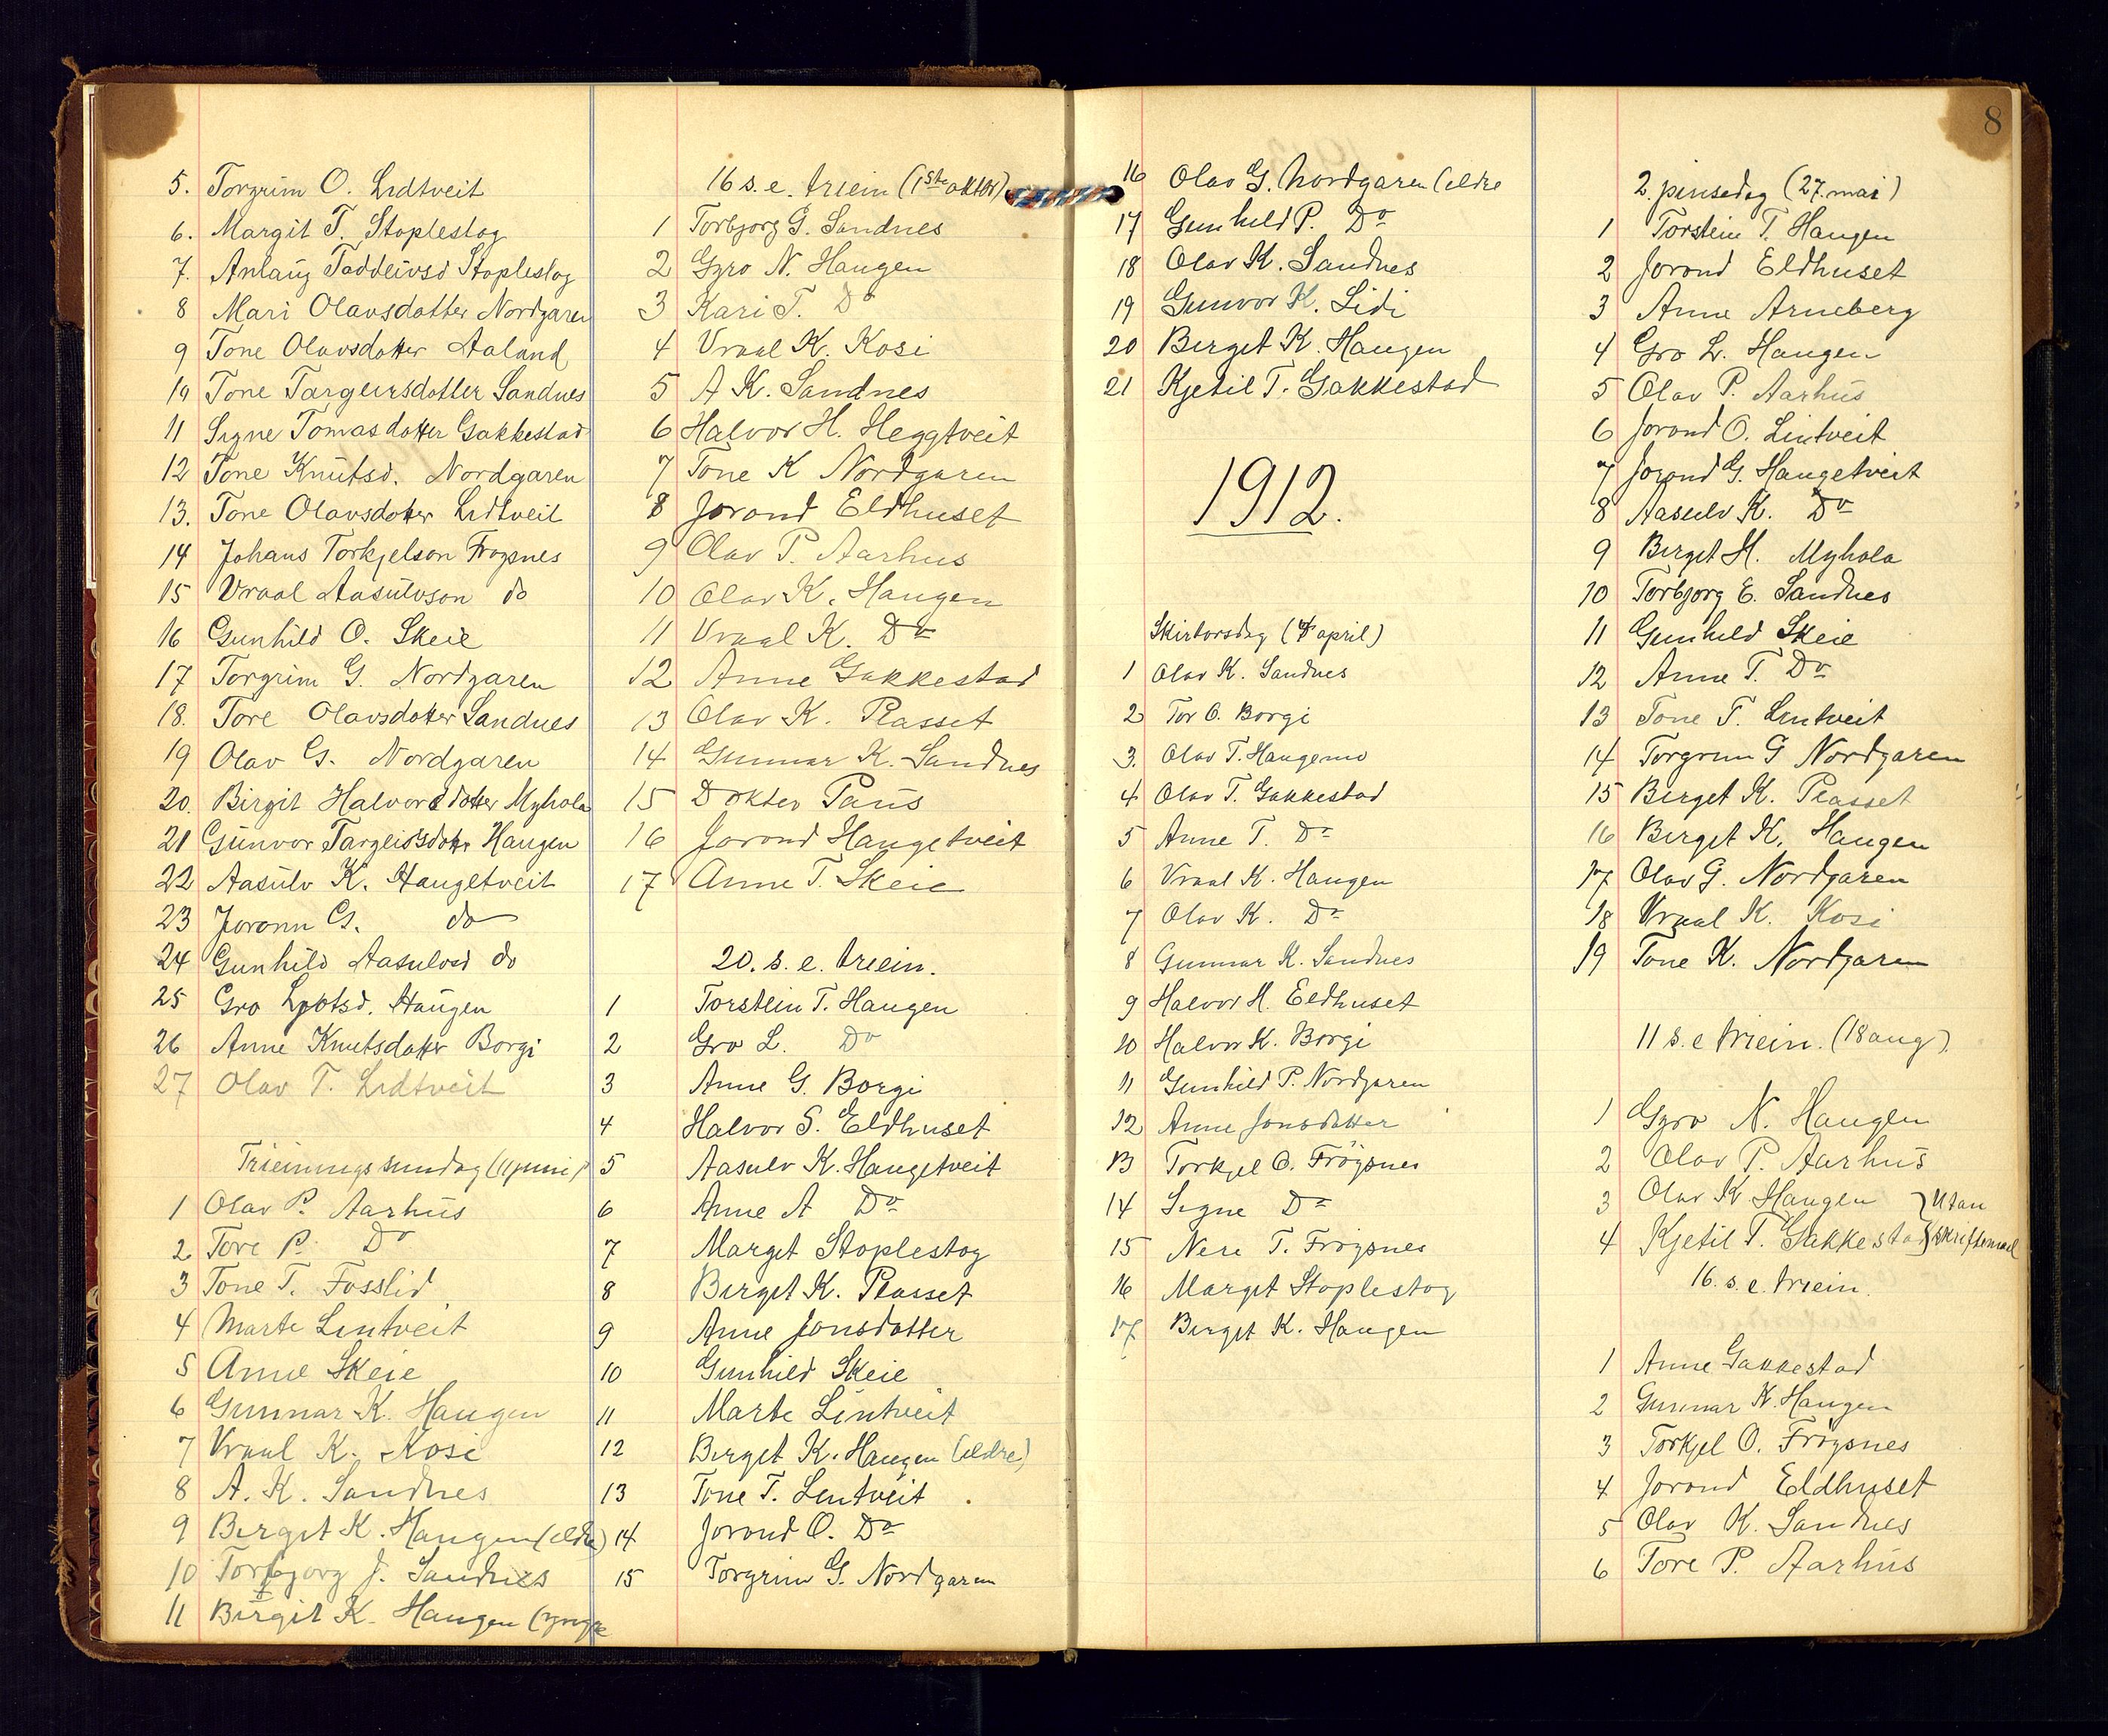 5. Torgrim O. Lidtveit
6. Margit T. Stoplestog
7. Anlaug Taddeivsd Stoplestog
8 Mari Olavsdotter Nordgaren
9 Tone Olavsdotter Aaland
10 Tone Targeirsdotter Sandnes
11 Signe Tomasdotter Gakkestad
12 Tone Knutsd. Nordgaren
13. Tone Olavsdotter Lidtveit
14 Johans Torkjelson Frøysnes
15 Vraal Aasulvson do
16 Gunhild O. Skeie
17 Torgrim G. Nordgaren
18. Tore Olavsdotter Sandnes
19 Olav G. Nordgaren
20. Birgit Halvorsdotter Myhola
21 Gunvor Targeirsdotr Haugen
22 Aasulv K. Haugetveit
23 Joronn G. do
24 Gunhild Aasulvsd do
25 Gro Ljotsd. Haugen
26 Anne Knutsdotter Borgi
27 Olav T. Lidtveit
Trieiningssundag (11 juni)
1 Olav P. Aarhus
2 Tore P. Do
3 Tone T. Fosslid
4 Marte Lintveit
5 Anne Skeie
6 Gunnar K. Haugen
7 Vraal K. Kosi
8 A. K. Sandnes
9 Birgit K. Haugen (eldre)
10 Torbjorg J. Sandnes
11 Birgit K. Haugen (yngre
16 s. e. triein (1ste oktbr)
1 Torbjorg G. Sandnes
2 Gyro N. Haugen
3 Kari T. Do
4 Vraal K. Kosi
5 A K. Sandnes
6 Halvor H. Heggtveit
7 Tone K Nordgaren
8 Jorond Eldhuset
9 Olav P. Aarhus
10 Olav K. Haugen
11 Vraal K. Do
12 Anne Gakkestad
13 Olav K. Plasset
14 Gunnar K. Sandnes
15 Dokter Paus
16 Jorond Haugetveit
17 Anne T. Skeie
20. s. e. triein.
1 Torstein T. Haugen
2 Gro L. Do
3 Anne G. Borgi
4 Halvor S. Eldhuset
5 Aasulv K. Haugetveit
6 Anne A Do
7 Marget Stoplestog
8 Birget K. Plasset
9 Anne Jonsdotter
10 Gunhild Skeie
11 Marte Lintveit
12 Birget K. Haugen (eldre)
13 Tone T. Lintveit
14 Jorond O. Do
15 Torgrim G. Nordgaren
8
16 Olav G. Nordgaren (eldre
17 Gunhild P. Do
18 Olav K. Sandnes
19 Gunvor K. Lidi
20 Birget K. Haugen
21 Kjetil T. Gakkestad
1912.
Skirtorsdag (4 april)
1 Olav K. Sandnes
2 Tor O. Borgi
3. Olav T. Haugemo
4 Olav T. Gakkestad
5 Anne T. Do
6 Vraal K. Haugen
7 Olav K. Do
8 Gunnar K. Sandnes
9 Halvor H. Eldhuset
10 Halvor K. Borgi
11 Gunhild P. Nordgaren
12 Anne Jonsdotter
13 Torkjel O. Fröysnes
14 Signe Do
15 Neri T. Fröysnes
16 Marget Stoplestog
17 Birget K. Haugen
2. pinsedag (27. mai)
1 Torstein T. Haugen
2 Jorond Eldhuset
3 Anne Arneberg
4 Gro L. Haugen
5 Olav P. Aarhus
6 Jorond O. Lintveit
7 Jorond G. Haugetveit
8 Aasulv K. Do
9 Birget H. Myhola
10 Torbjorg E. Sandnes
11 Gunhild Skeie
12 Anne T. Do
13 Tone T. Lintveit
14 Torgrim G Nordgaren
15 Birget K. Plasset
16 Birget K. Haugen
17 Olav G. Nordgaren
18 Vraal K. Kosi
19 Tone K. Nordgaren
11 s. e triein. (18 aug).
1 Gyro N. Haugen
2 Olav P. Aarhus
3 Olav K Haugen } Utan
4 Kjetil T. Gakkestad } skriftemaal
16. s. e. triein.
1 Anne Gakkestad
2 Gunnar K. Haugen
3 Torkjel O. Fröysnes
4 Jorond Eldhuset
5 Olav K. Sandnes
6 Tore P. Aarhus